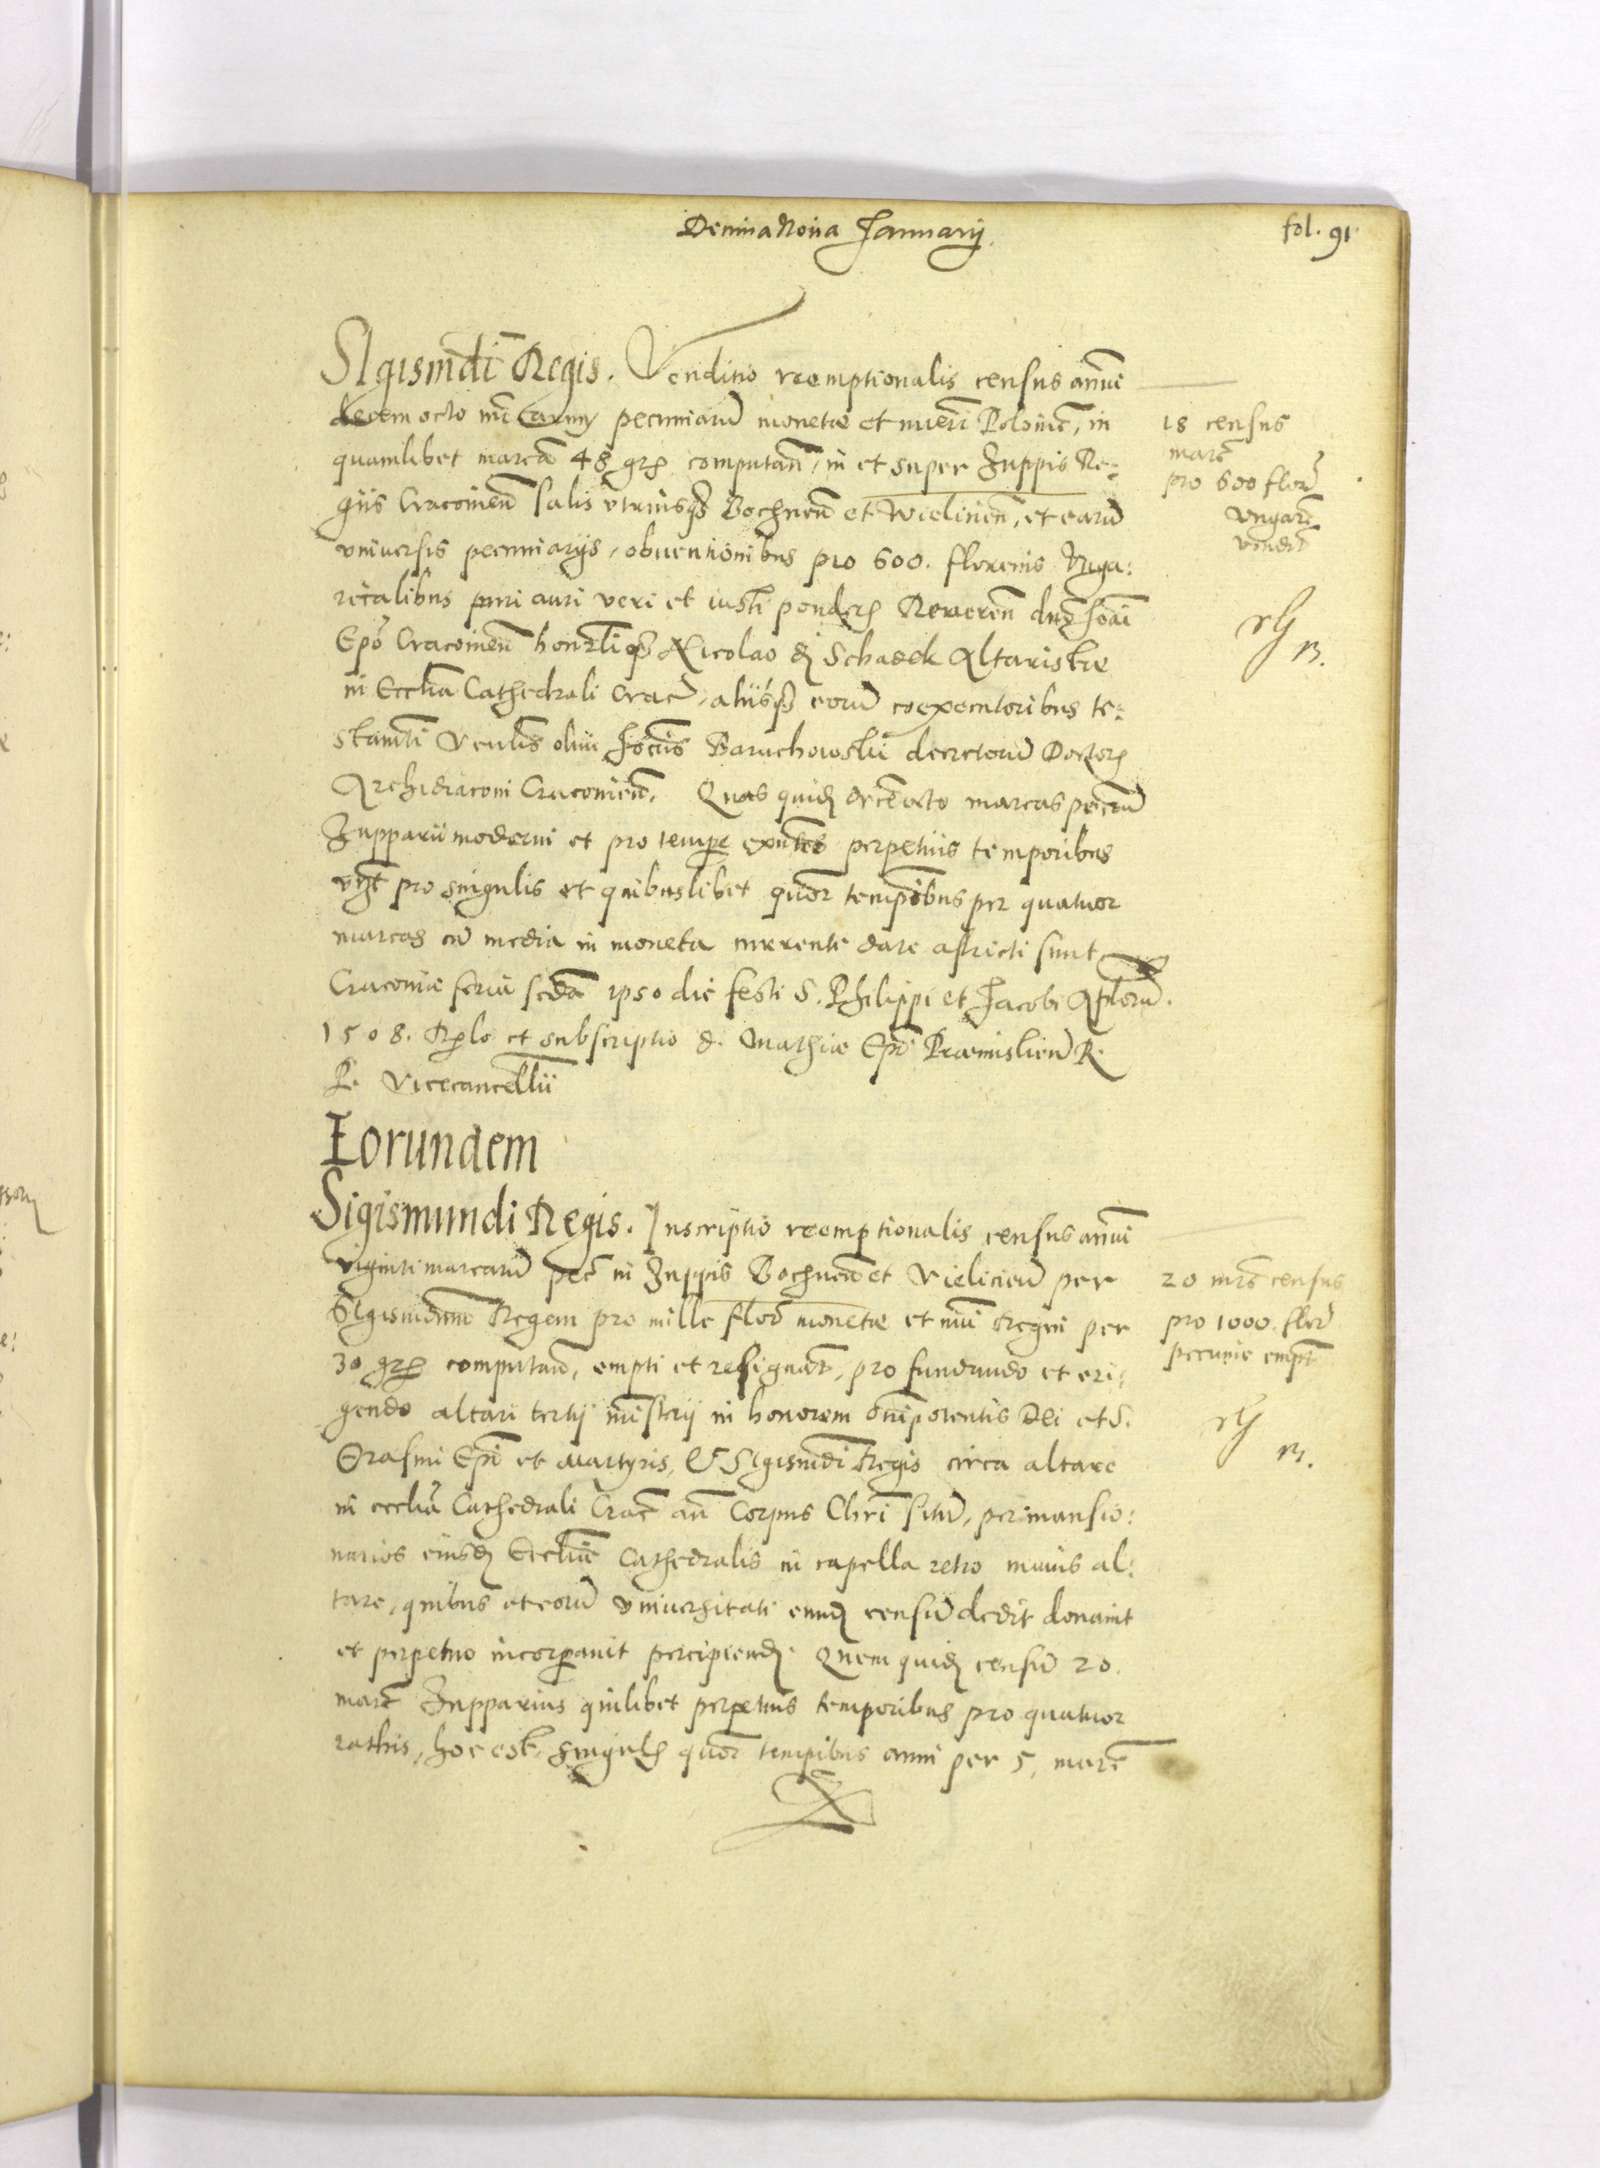 Decima Nona Januarij.
fol. 91
SIgismūdi Regis. Venditio reemptionalis census annui
decem octo pecuniarū monetæ et nūeri Polonic̄, in
quamlibet marcā 48 gr̄ computan̄, in et super Zuppis Re-
giis Cracovieñ salis vtriusq̄ Bochneñ et Wieliceñ, et earū
vniuersis pecuniarijs, obuentionibus pro 600. florenis Vnga:
ricalibus puri auri veri et iusti ponderis Reueren̄ dn̄o Joāi
Ep̄o Cracovieñ Nicolao de Schadek Altaristæ
in Ecclīa Cathedrali Crac̄, aliisq̄ eorū coexecutoribus te:
stamēti Ven̄lis olim Baruchowski decretorū Doctoris
Archidiaconi Cracovieñ. Quas quidē decēocto marcas pecun̄
Zupparii moderni et pro tempore exn̄tes perpetuis temporibus
vz̄t pro singulis et quibuslibet quor̄ temporibus per quatuor
marcas cū media in moneta currente dare astricti sunt
Cracoviæ feria scd̄a ipso die festi S. Philippi et Jacobi Aplorū.
1508. Rela et subscriptio d. Mathiæ Ep̄i Præmislień R.
P. Vicecancellarii
Eorundem
Sigismundi Regis. Inscriptio reemptionalis census annui
viginti marcarū pec̄ in Zuppis Bochneñ et Vielicieñ per
SIgismūdum Regem pro mille flor̄ monetæ et nūi Regni per
30 gr̄ computan̄, empti et resignat̄, pro fundando et eri:
gendo altari tertij ministerij in honorem Oīnipotentis Dei et S.
Erasmi Ep̄i et Martyris, & SIgismūdi Regis circa altare
in ecclīa Cathedrali Crac̄ an̄ Corpus Christi situ, per mansio:
narios eiusdē Ecclīæ Cathedralis in capella retro maius al:
tare, quibus et eorū Vniuersitati eundē censū dedit donauit
et perpetuo incorporauit percipiendū. Quem quidē censū 20
marc̄ Zupparius quilibet perpetuis temporibus pro quatuor
rathis, hoc est, singulis quor̄ temporibus anni per 5, marc̄
18 census
marc̄
pro 600 flor̄
Vngar̄
vendit̄
20 mrc̄ census
pro 1000 flor̄
pecuniæ empt̄